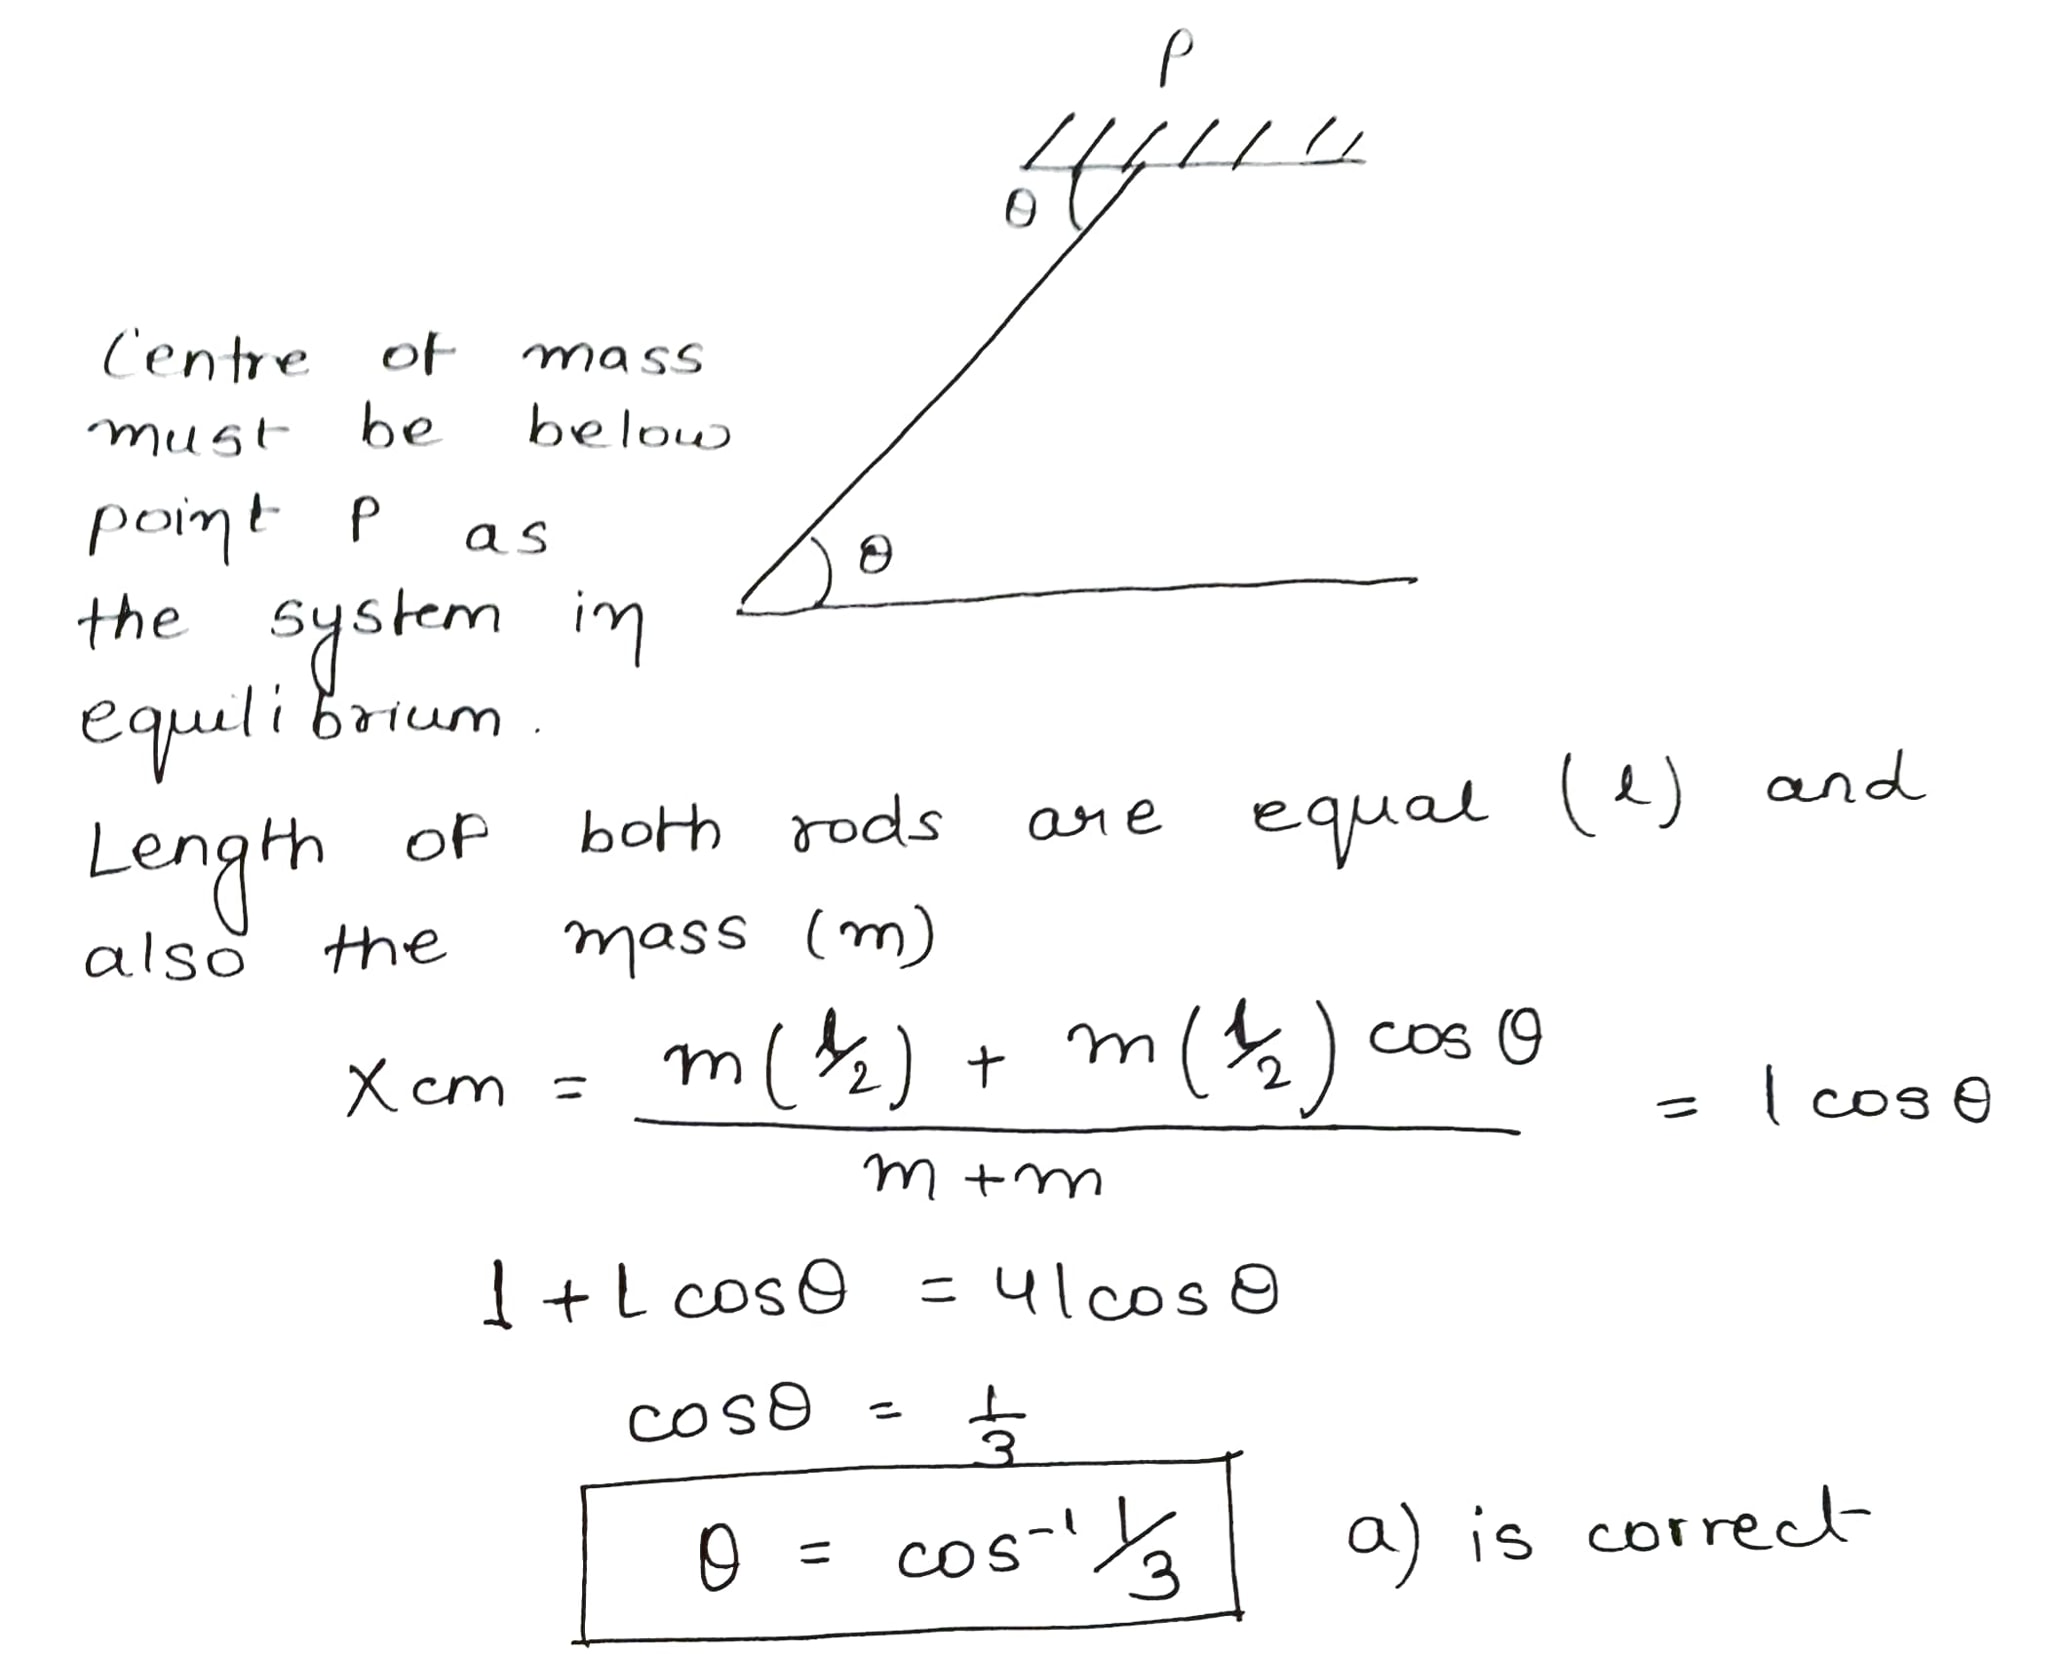 P
θ
Centre of mass
must be below
point P as
θ
the system in
equilibrium.
Length of both rods are equal (l) and
also the mass (m)
Xcm = m(l/2) + m(l/2) cos θ / m + m = l cos θ
l + l cos θ = 4l cos θ
cos θ = 1/3
θ = cos⁻¹ 1/3 a) is correct